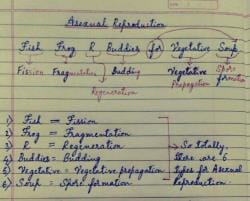 Asexual Reproduction
Fish Frog R Buddies for Vegetative Soup
Fission Fragmentation Budding Vegetative Propagation Spore formation
Regeneration
1) Fish = Fission
2) Frog = Fragmentation
3) R = Regeneration
4) Buddies = Budding
5) Vegetative = Vegetative propagation
6) Soup = Spore formation
So totally, there are 6 types for Asexual Reproduction.